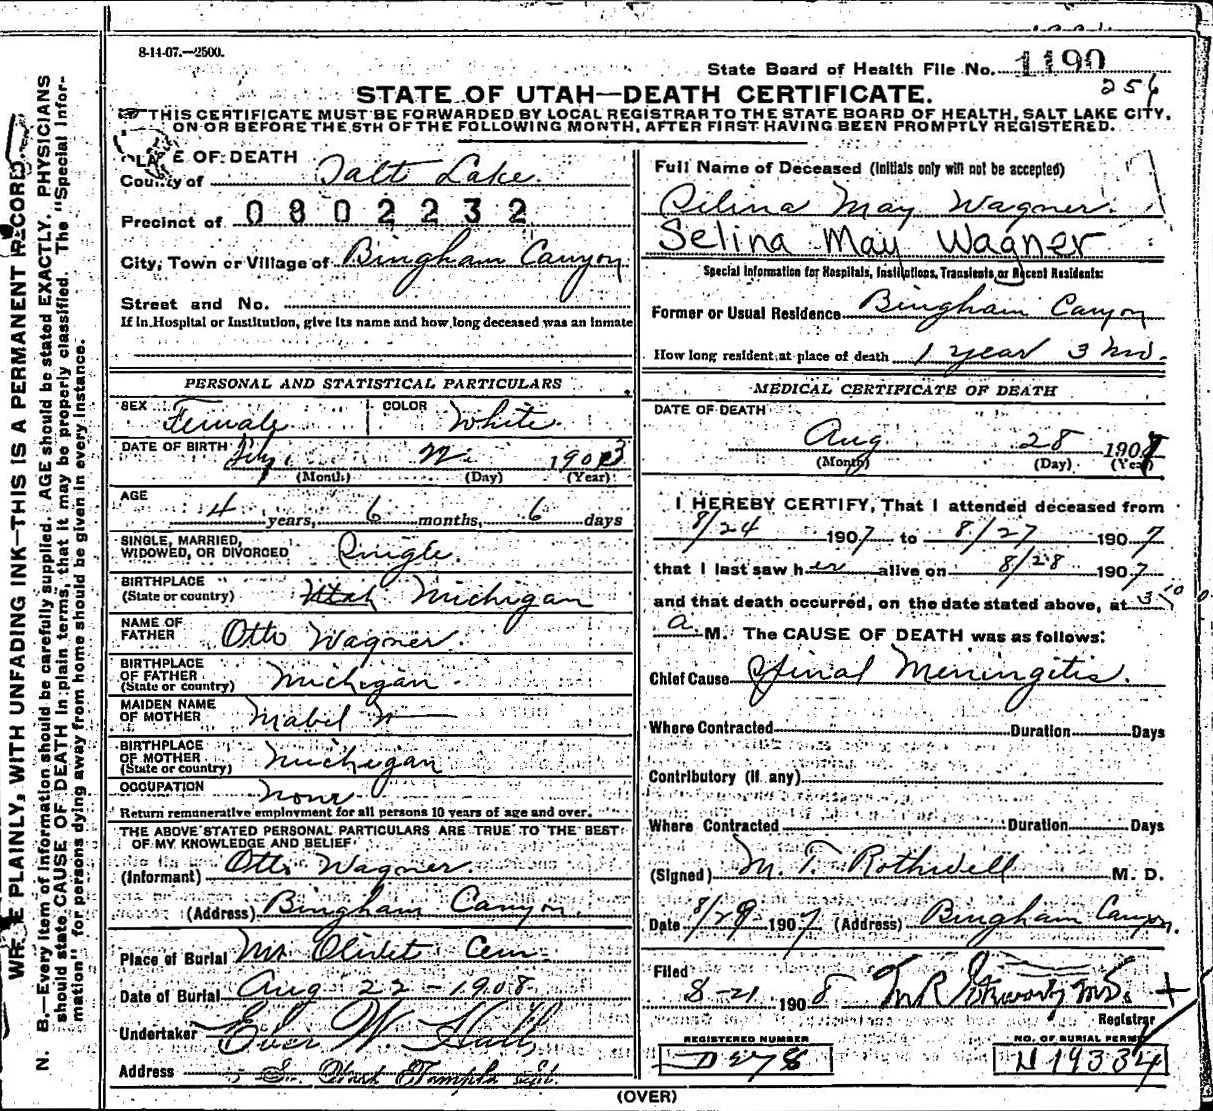 8-14-07.—2500.
State Board of Health File No. 1190
256
STATE OF UTAH—DEATH CERTIFICATE.
THIS CERTIFICATE MUST BE FORWARDED BY LOCAL REGISTRAR TO THE STATE BOARD OF HEALTH, SALT LAKE CITY,
ON OR BEFORE THE 5TH OF THE FOLLOWING MONTH, AFTER FIRST HAVING BEEN PROMPTLY REGISTERED.
E OF DEATH
County of Salt Lake.
Precinct of 0802232
City, Town or Village of Bingham Canyon
Street and No.
If in Hospital or Institution, give its name and how long deceased was an inmate
PERSONAL AND STATISTICAL PARTICULARS
SEX Female COLOR White.
DATE OF BIRTH 190
(Month) (Day) (Year)
AGE
4 years, 6 months, 6 days
SINGLE, MARRIED,
WIDOWED, OR DIVORCED Single.
BIRTHPLACE
(State or country) Utah Michigan
NAME OF
FATHER Otto Wagner.
BIRTHPLACE
OF FATHER
(State or country) Michigan.
MAIDEN NAME
OF MOTHER Mabel
BIRTHPLACE
OF MOTHER
(State or country) Michigan
OCCUPATION none
Return remunerative employment for all persons 10 years of age and over.
THE ABOVE STATED PERSONAL PARTICULARS ARE TRUE TO THE BEST
OF MY KNOWLEDGE AND BELIEF
(Informant) Otto Wagner.
(Address) Bingham Canyon.
Place of Burial Mt Olivet Cem.
Date of Burial Aug 22 - 1908.
Undertaker Eber W. Hall
Address Temple
Full Name of Deceased (Initials only will not be accepted)
Selina May Wagner.
Selina May Wagner
Special Information for Hospitals, Institutions, Transients or Recent Residents:
Former or Usual Residence Bingham Canyon
How long resident at place of death 1 year 3 mo.
MEDICAL CERTIFICATE OF DEATH
DATE OF DEATH
Aug 28 1907
(Month) (Day) (Year)
I HEREBY CERTIFY, That I attended deceased from
8/24 1907 to 8/27 1907
that I last saw her alive on 8/28 1907
and that death occurred, on the date stated above, at 3 10
a. M. The CAUSE OF DEATH was as follows:
Chief Cause Spinal Meningitis.
Where Contracted Duration Days
Contributory (if any)
Where Contracted Duration Days
(Signed) M. T. Rothwell M. D.
Date 8/29 1907 (Address) Bingham Canyon.
Filed
8-21 1908
Registrar
REGISTERED NUMBER
D278
NO. OF BURIAL PERMIT
D 19334
(OVER)
N. B.—Every item of information should be carefully supplied. AGE should be stated EXACTLY. PHYSICIANS
should state CAUSE OF DEATH in plain terms, that it may be properly classified. The "Special Infor-
mation" for persons dying away from home should be given in every instance.
PLAINLY, WITH UNFADING INK—THIS IS A PERMANENT RECORD.